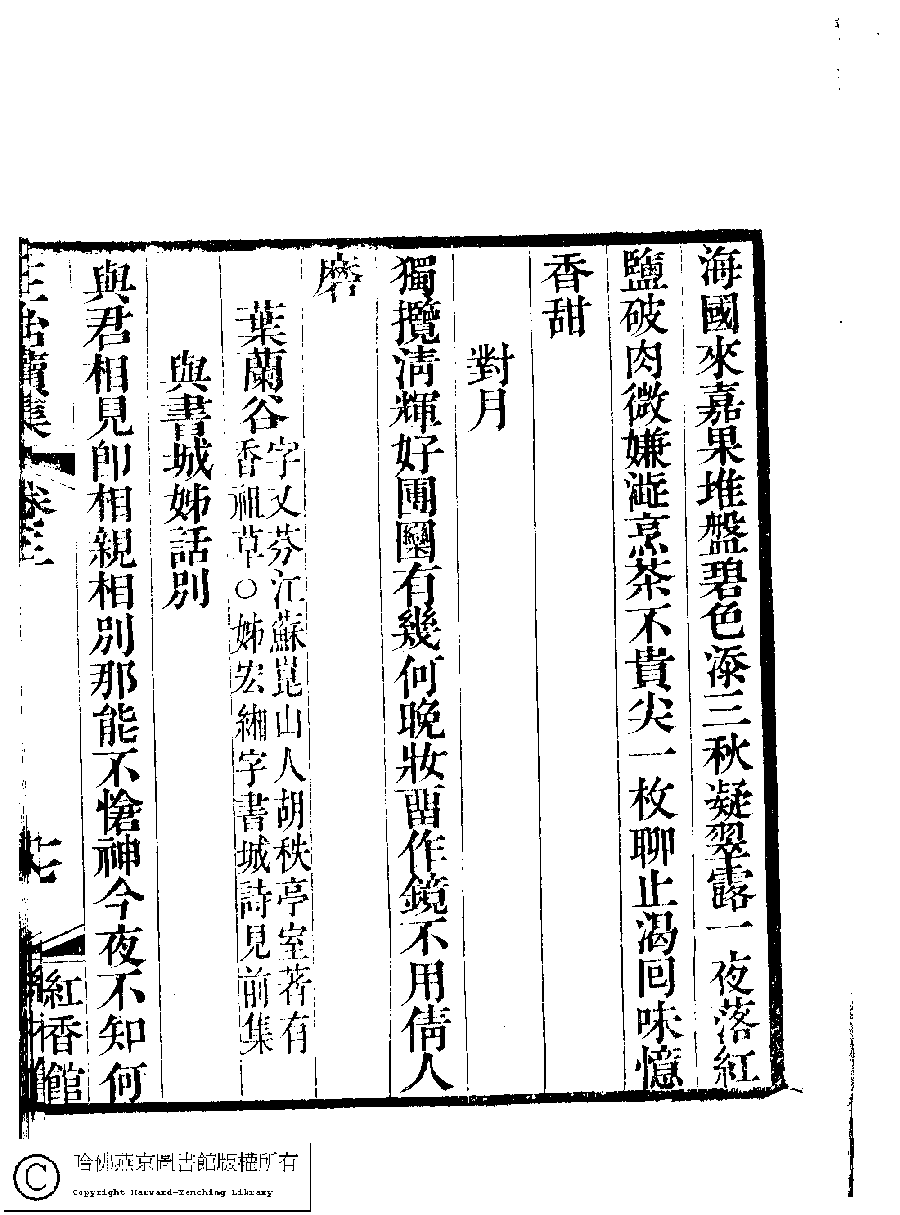 海國來嘉果堆盤碧色添三秋凝翠露一夜落紅
鹽破肉微嫌澁烹茶不貴尖一枚聊止渴回味憶
香甜
對月
獨攬淸輝好團圞有幾何晚妝畱作鏡不用倩人
磨
葉蘭谷字又芬江蘇崑山人胡秩亭室著有
香祖草○姊宏緗字書城詩見前集
與書城姊話別
與君相見卽相親相別那能不愴神今夜不知何
續集 卷三 七 紅香館
哈佛燕京圖書館版權所有
Copyright Harvard-Yenching Library